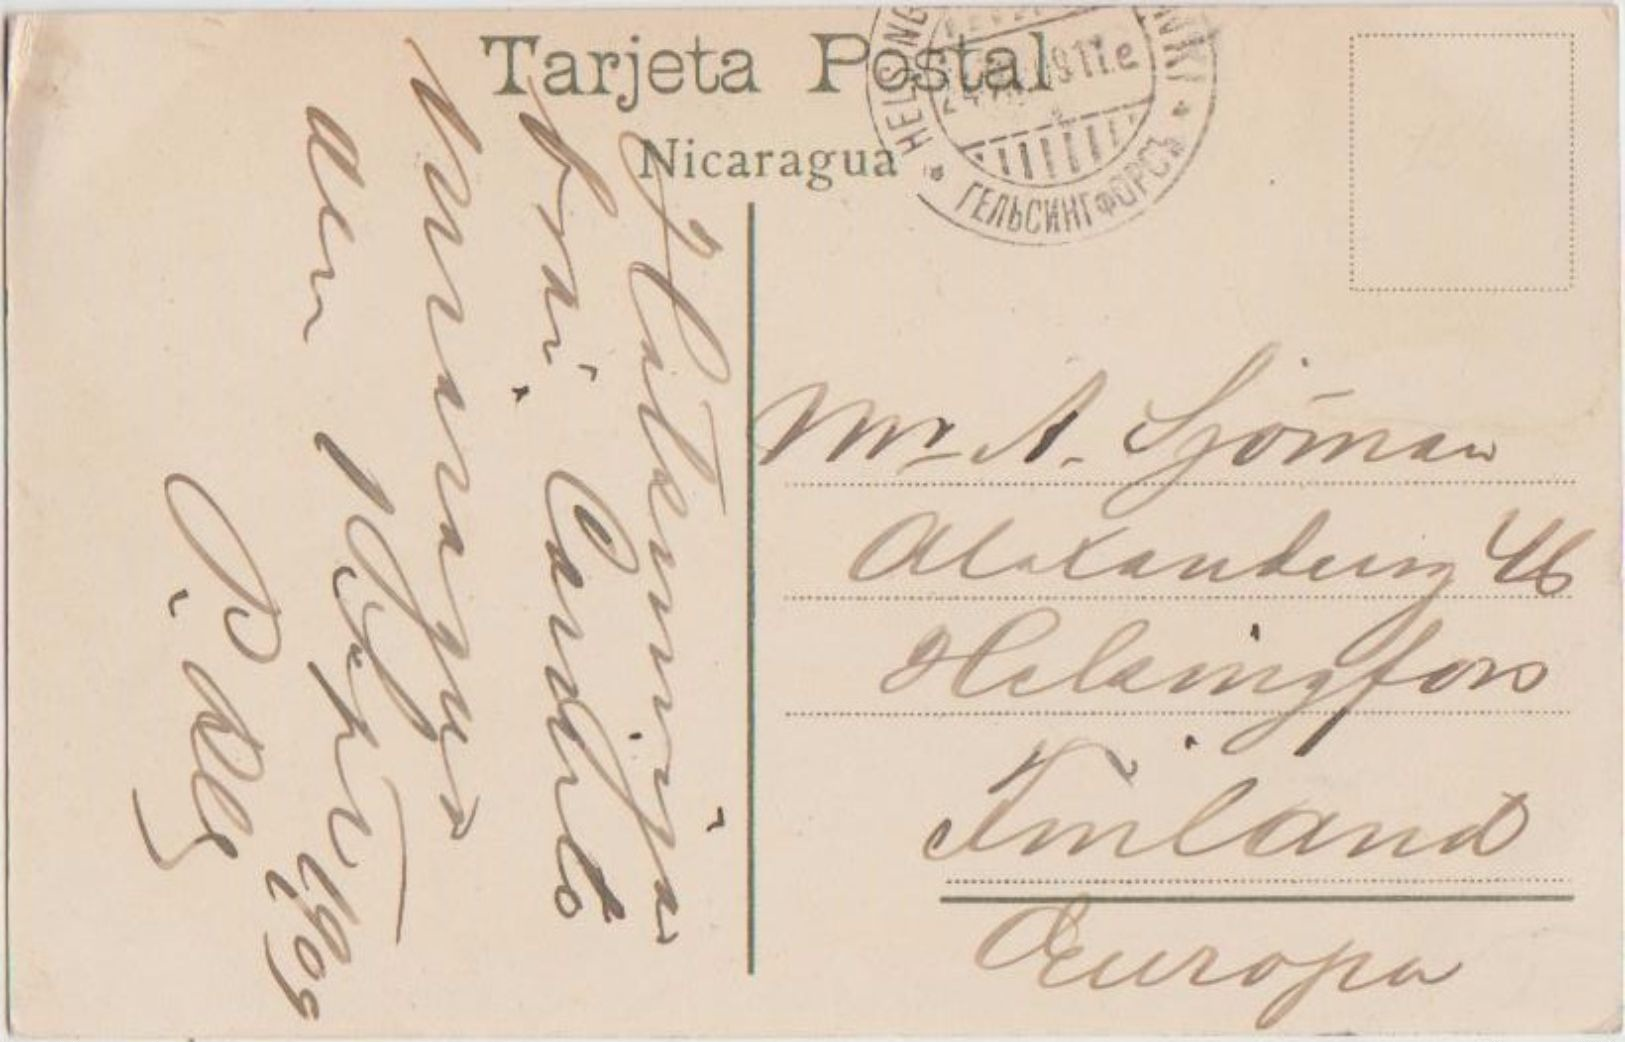 Tarjeta Postal
Nicaragua
HELSING
INKI
09 11.e
ГЕЛЬСИНГФОРСЪ
från Corinto
Nicaragua
den 1909
Mr A. Sjöman
Alexandersg 46
Helsingfors
Finland
Europa